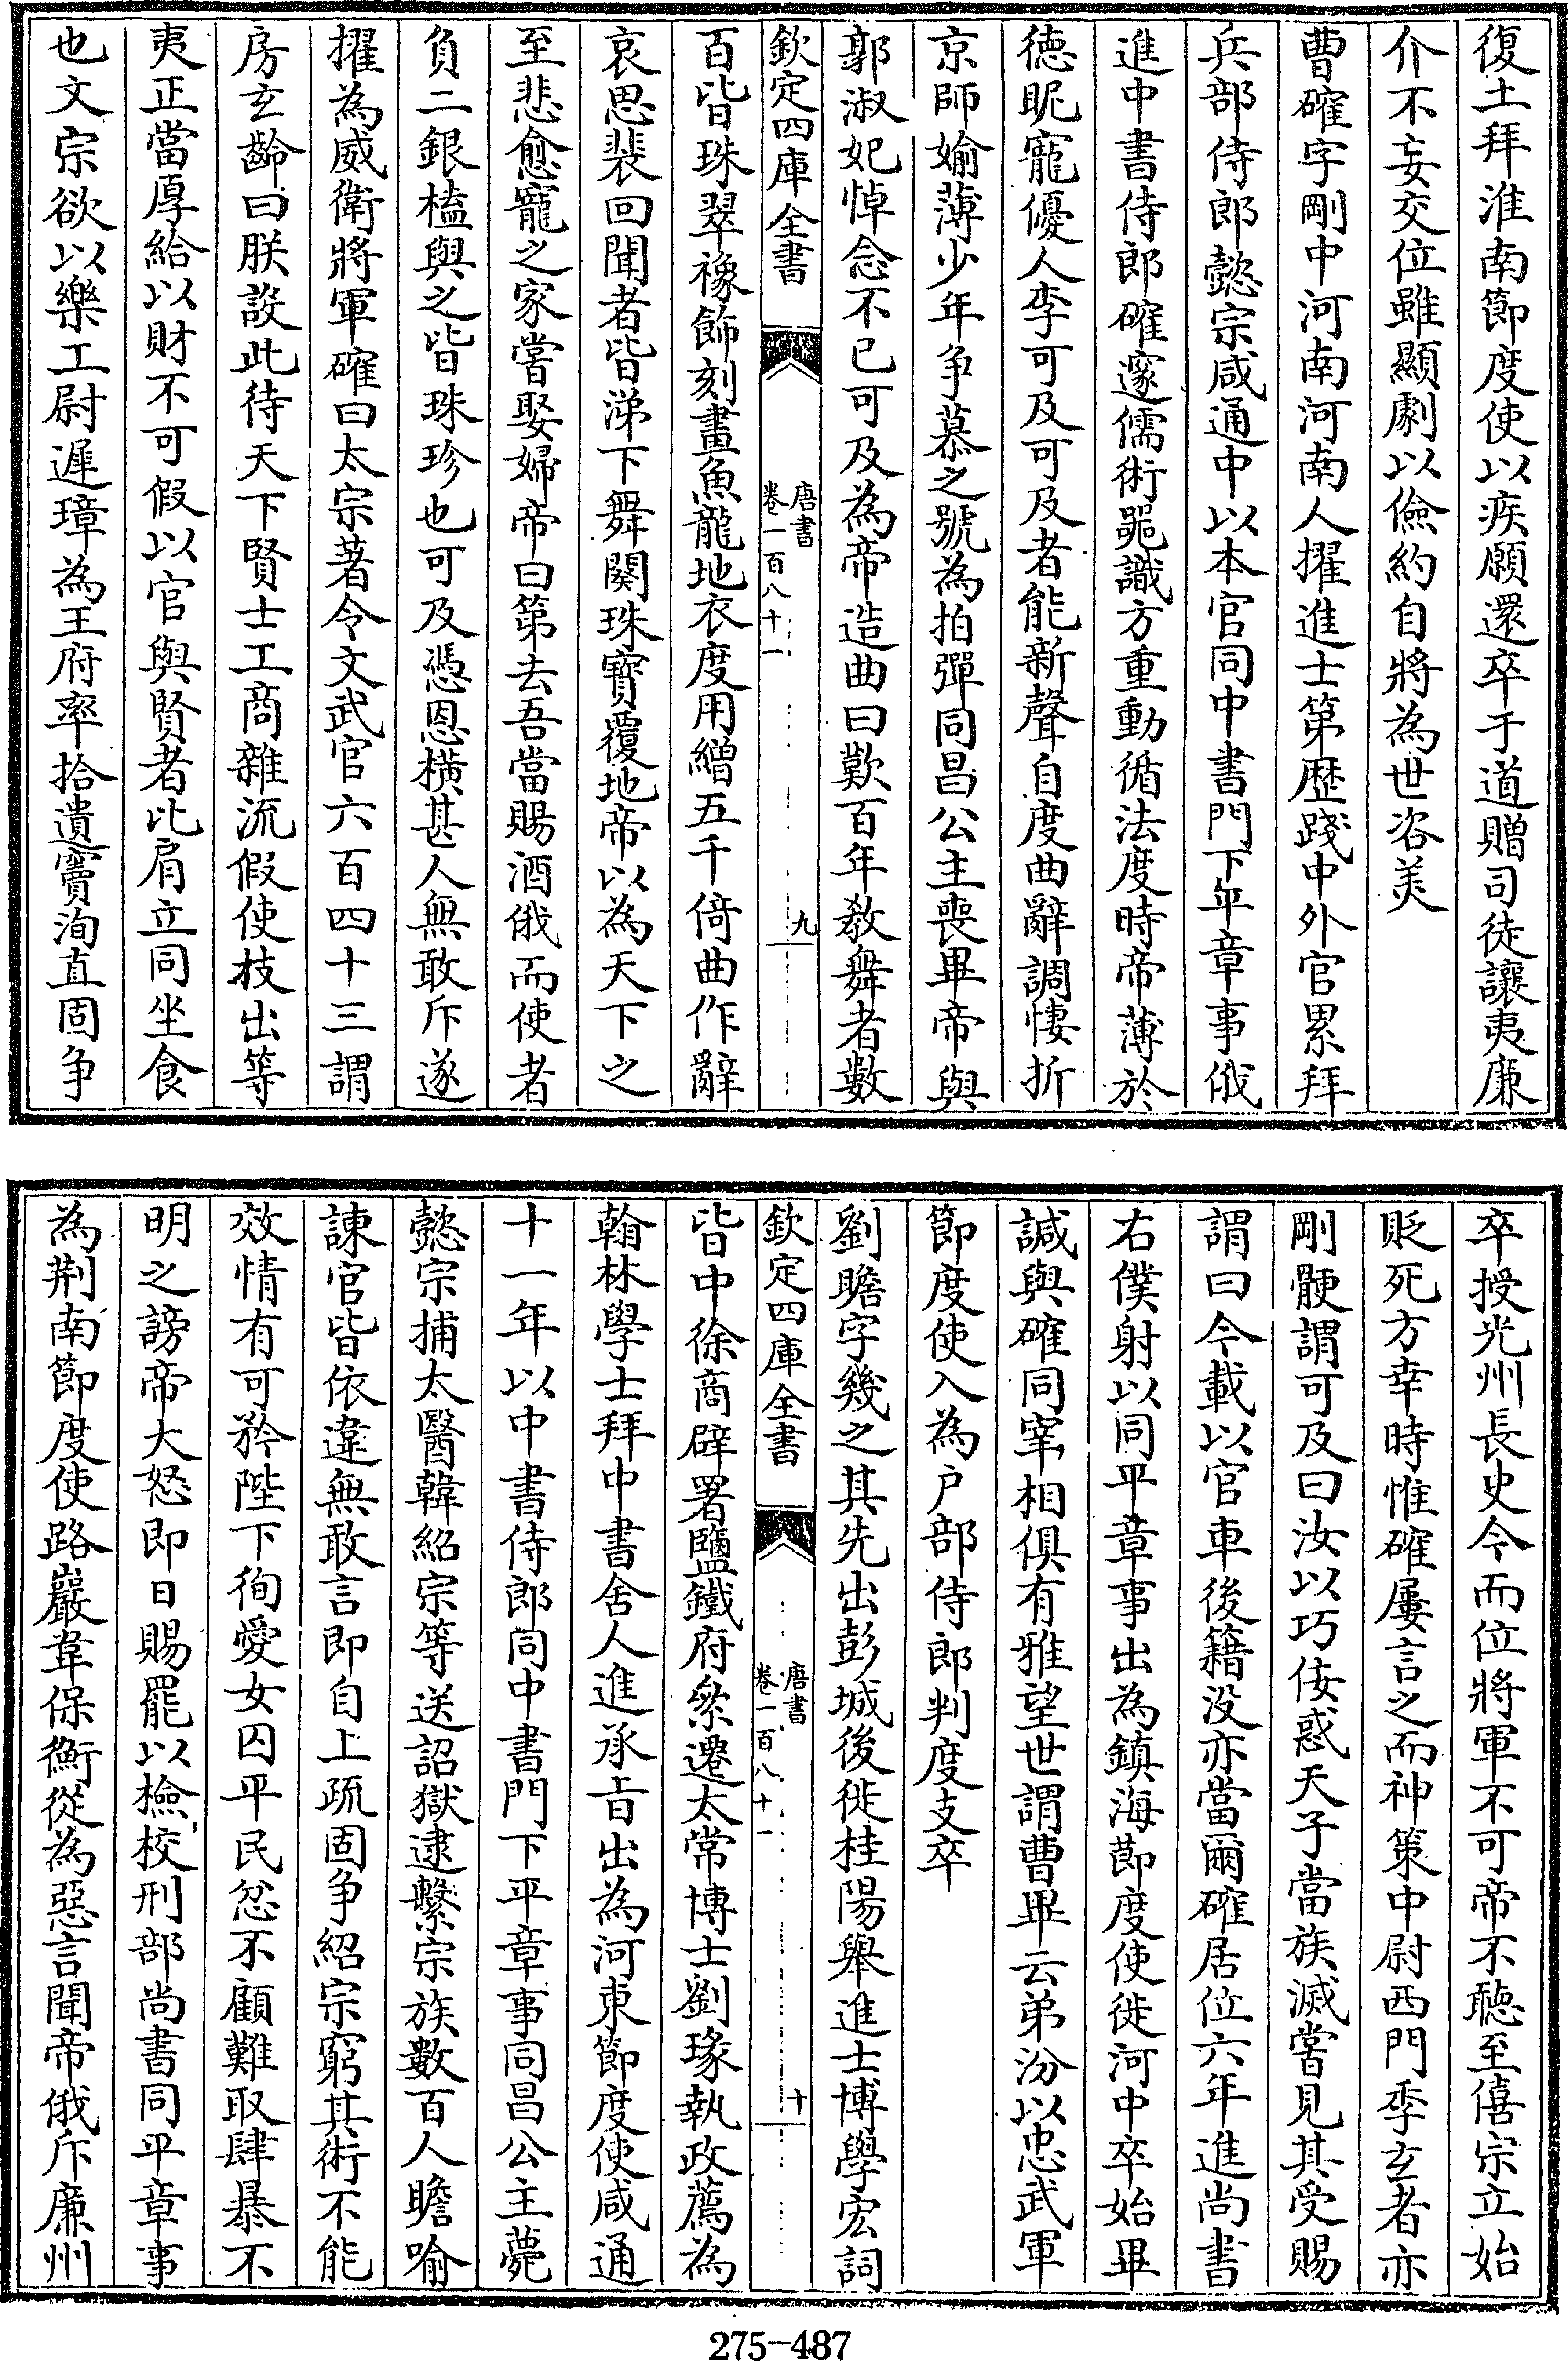 復土拜淮南節度使以疾願還卒于道贈司徒讓夷廉
介不妄交位雖顯劇以儉約自將為世咨美
曹確字剛中河南河南人擢進士第歴踐中外官累拜
兵部侍郎懿宗咸通中以本官同中書門下平章事俄
進中書侍郎確邃儒術噐識方重動循法度時帝薄於
徳昵寵優人李可及可及者能新聲自度曲辭調悽折
京師媮薄少年爭慕之號為拍彈同昌公主喪畢帝與
郭淑妃悼念不已可及為帝造曲曰歎百年敎舞者數
欽定四庫全書
唐書
卷一百八十一
九
百皆珠翠襐飾刻畫魚龍地衣度用繒五千倚曲作辭
哀思裴回聞者皆涕下舞闋珠寳覆地帝以為天下之
至悲愈寵之家嘗娶婦帝曰第去吾當賜酒俄而使者
負二銀榼與之皆珠珍也可及憑恩橫甚人無敢斥遂
擢為威衛將軍確曰太宗著令文武官六百四十三謂
房玄齡曰朕設此待天下賢士工商雜流假使技出等
夷正當厚給以財不可假以官與賢者比肩立同坐食
也文宗欲以樂工尉遲璋為王府率拾遺竇洵直固爭
卒授光州長史今而位將軍不可帝不聽至僖宗立始
貶死方幸時惟確屢言之而神策中尉西門季玄者亦
剛骾謂可及曰汝以巧佞惑天子當族滅嘗見其受賜
謂曰今載以官車後籍没亦當爾確居位六年進尚書
右僕射以同平章事出為鎮海節度使徙河中卒始畢
諴與確同宰相俱有雅望世謂曹畢云弟汾以忠武軍
節度使入為户部侍郎判度支卒
劉瞻字幾之其先出彭城後徙桂陽舉進士博學宏詞
欽定四庫全書
唐書
卷一百八十一
十
皆中徐商辟署鹽鐵府累遷太常博士劉瑑執政薦為
翰林學士拜中書舍人進承旨出為河東節度使咸通
十一年以中書侍郎同中書門下平章事同昌公主薨
懿宗捕太醫韓紹宗等送詔獄逮繫宗族數百人瞻喻
諫官皆依違無敢言即自上疏固爭紹宗窮其術不能
效情有可矜陛下徇愛女囚平民忿不顧難取肆暴不
明之謗帝大怒即日賜罷以檢校刑部尚書同平章事
為荆南節度使路巖韋保衡從為惡言聞帝俄斥廉州
275-487